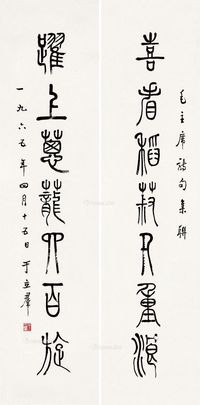 毛主席詩句集聯
喜看稻菽千重浪
躍上蔥蘢四百旋
一九六五年四月十五日 于立羣